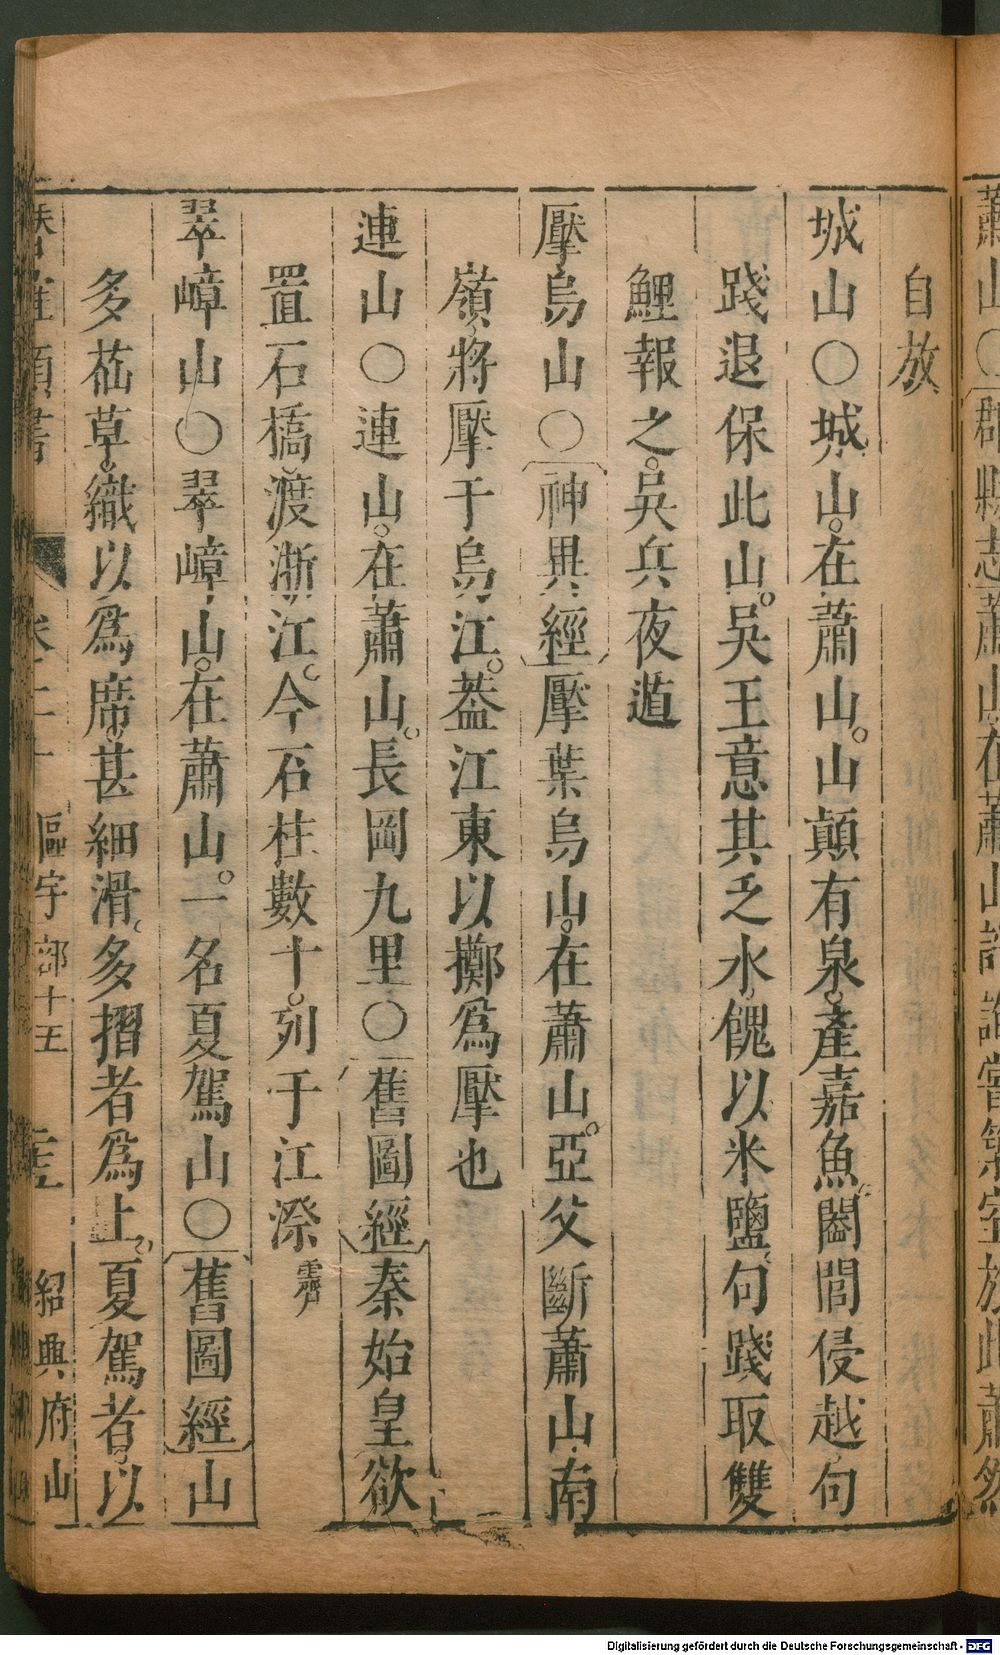 蕭山○郡縣志蕭山在蕭山許詢嘗築室於此蕭然
自放
城山○城山。在蕭山。山顛有泉。產嘉魚。闔閭侵越句
踐退保此山。吳王意其乏水、餽以米鹽、句踐取雙
鯉報之。吳兵夜遁
壓烏山○神異經壓葉烏山。在蕭山。亞父斷蕭山南
嶺、將壓于烏江。葢江東以擲爲壓也
連山○連山。在蕭山。長岡九里○舊圖經秦始皇欲
置石橋、渡浙江。今石柱數十。列于江漈霽
翠嶂山○翠嶂山。在蕭山。一名夏駕山○舊圖經山
多䓉草。織以爲席。甚細滑。多摺者爲上。夏駕者、以
類書
區宇部十五
紹興府山
Digitalisierung gefördert durch die Deutsche Forschungsgemeinschaft - DFG